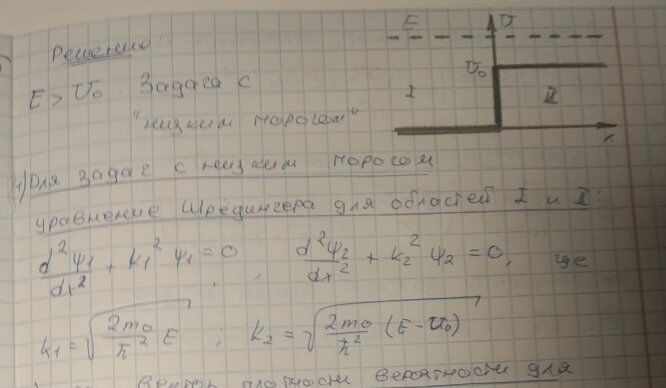 Решение:
E > U₀. Задача с
"низким порогом"
E U
U₀
I II
x
1) Для задач с низким порогом
уравнение Шрёдингера для областей I и II:
d²ψ₁/dx² + k₁² ψ₁ = 0, d²ψ₂/dx² + k₂² ψ₂ = 0, где
k₁ = √(2m₀/ħ² E) ; k₂ = √(2m₀/ħ² (E - U₀))
вектор плотности вероятности для